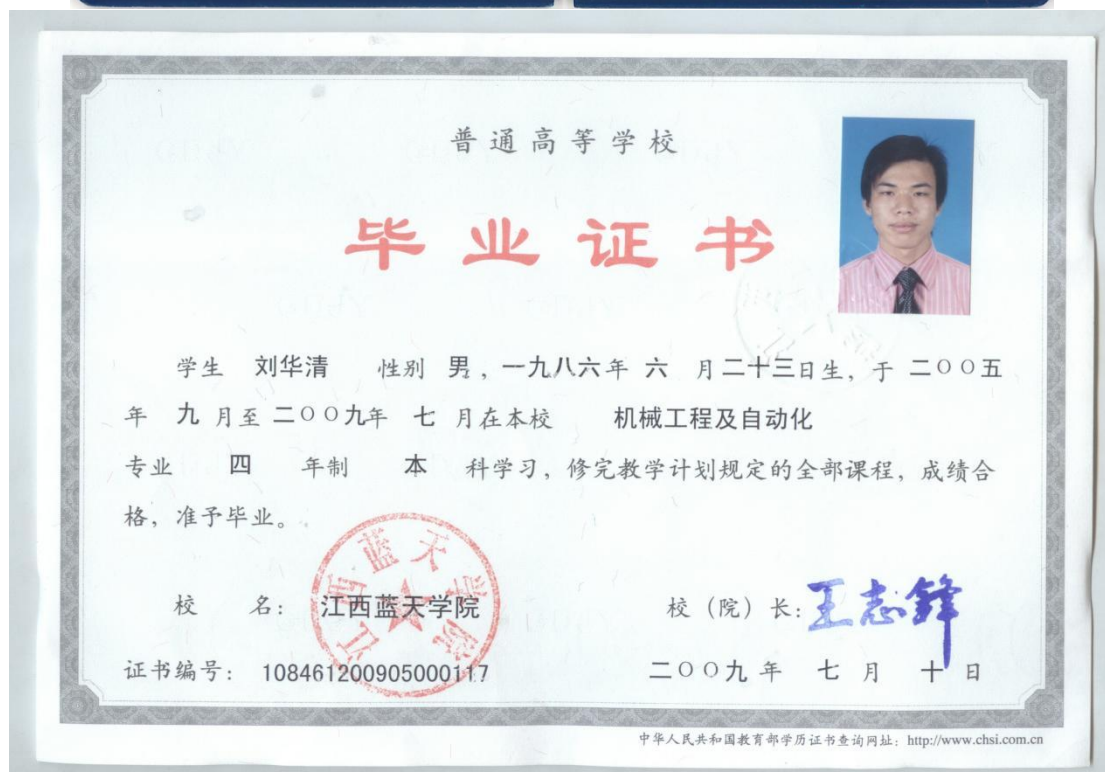 普通高等学校
毕业证书
学生 刘华清 性别 男，一九八六年 六 月二十三日生，于 二〇〇五
年 九 月至 二〇〇九年 七 月在本校 机械工程及自动化
专业 四 年制 本 科学习，修完教学计划规定的全部课程，成绩合
格，准予毕业。
江西蓝天学院
校 名： 江西蓝天学院 校（院）长：王志锋
证书编号： 108461200905000117 二〇〇九 年 七 月 十 日
中华人民共和国教育部学历证书查询网址：http://www.chsi.com.cn